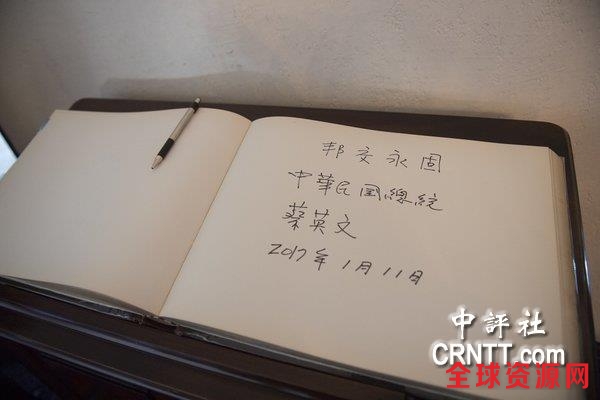 邦交永固
中華民国總統
蔡英文
2017年1月11日
中評社
CRNTT.com
全球资源网